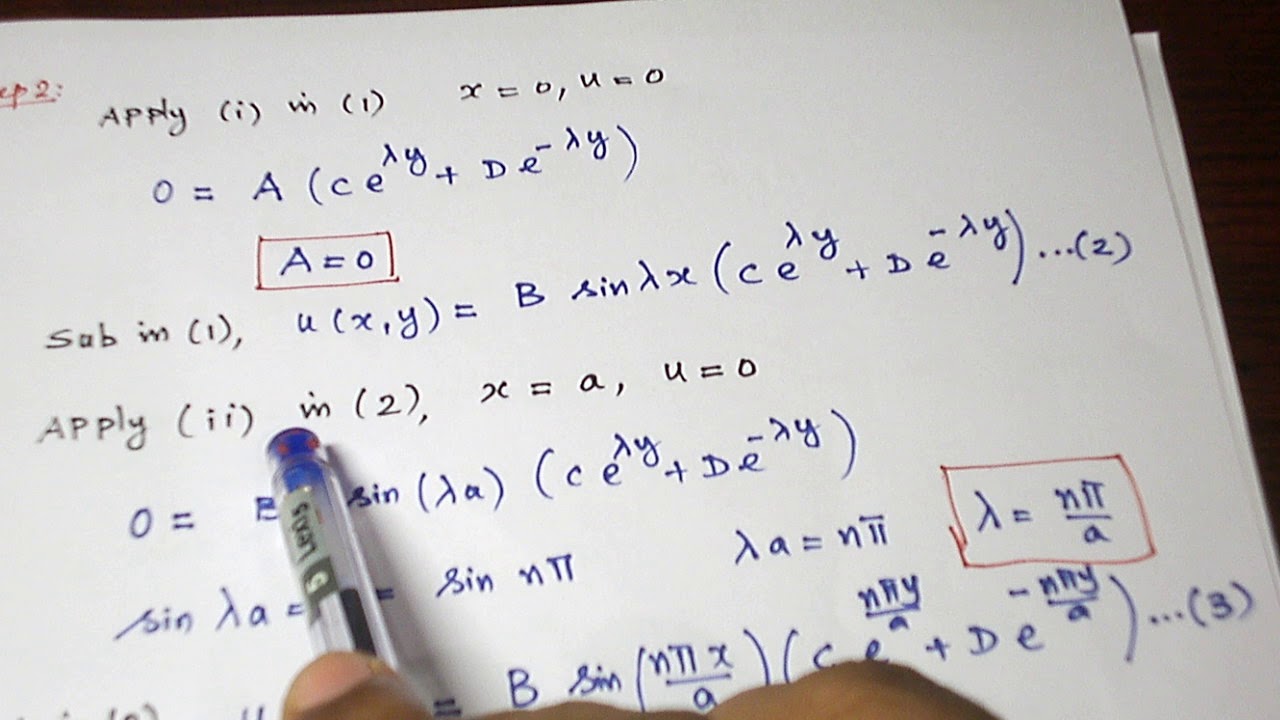 ep 2:
Apply (i) in (1) x = 0, u = 0
0 = A (C e^{λy} + D e^{-λy})
A = 0
Sub in (1), u(x,y) = B sin λx (C e^{λy} + D e^{-λy}) ...(2)
Apply (ii) in (2), x = a, u = 0
0 = B sin (λa) (C e^{λy} + D e^{-λy})
sin λa = = sin nπ λa = nπ λ = nπ/a
= B sin (nπx/a) (C e^{nπy/a} + D e^{-nπy/a}) ...(3)